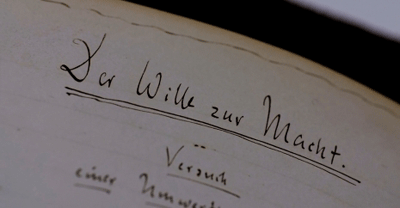 Der Wille zur Macht.
Versuch
einer Umwert